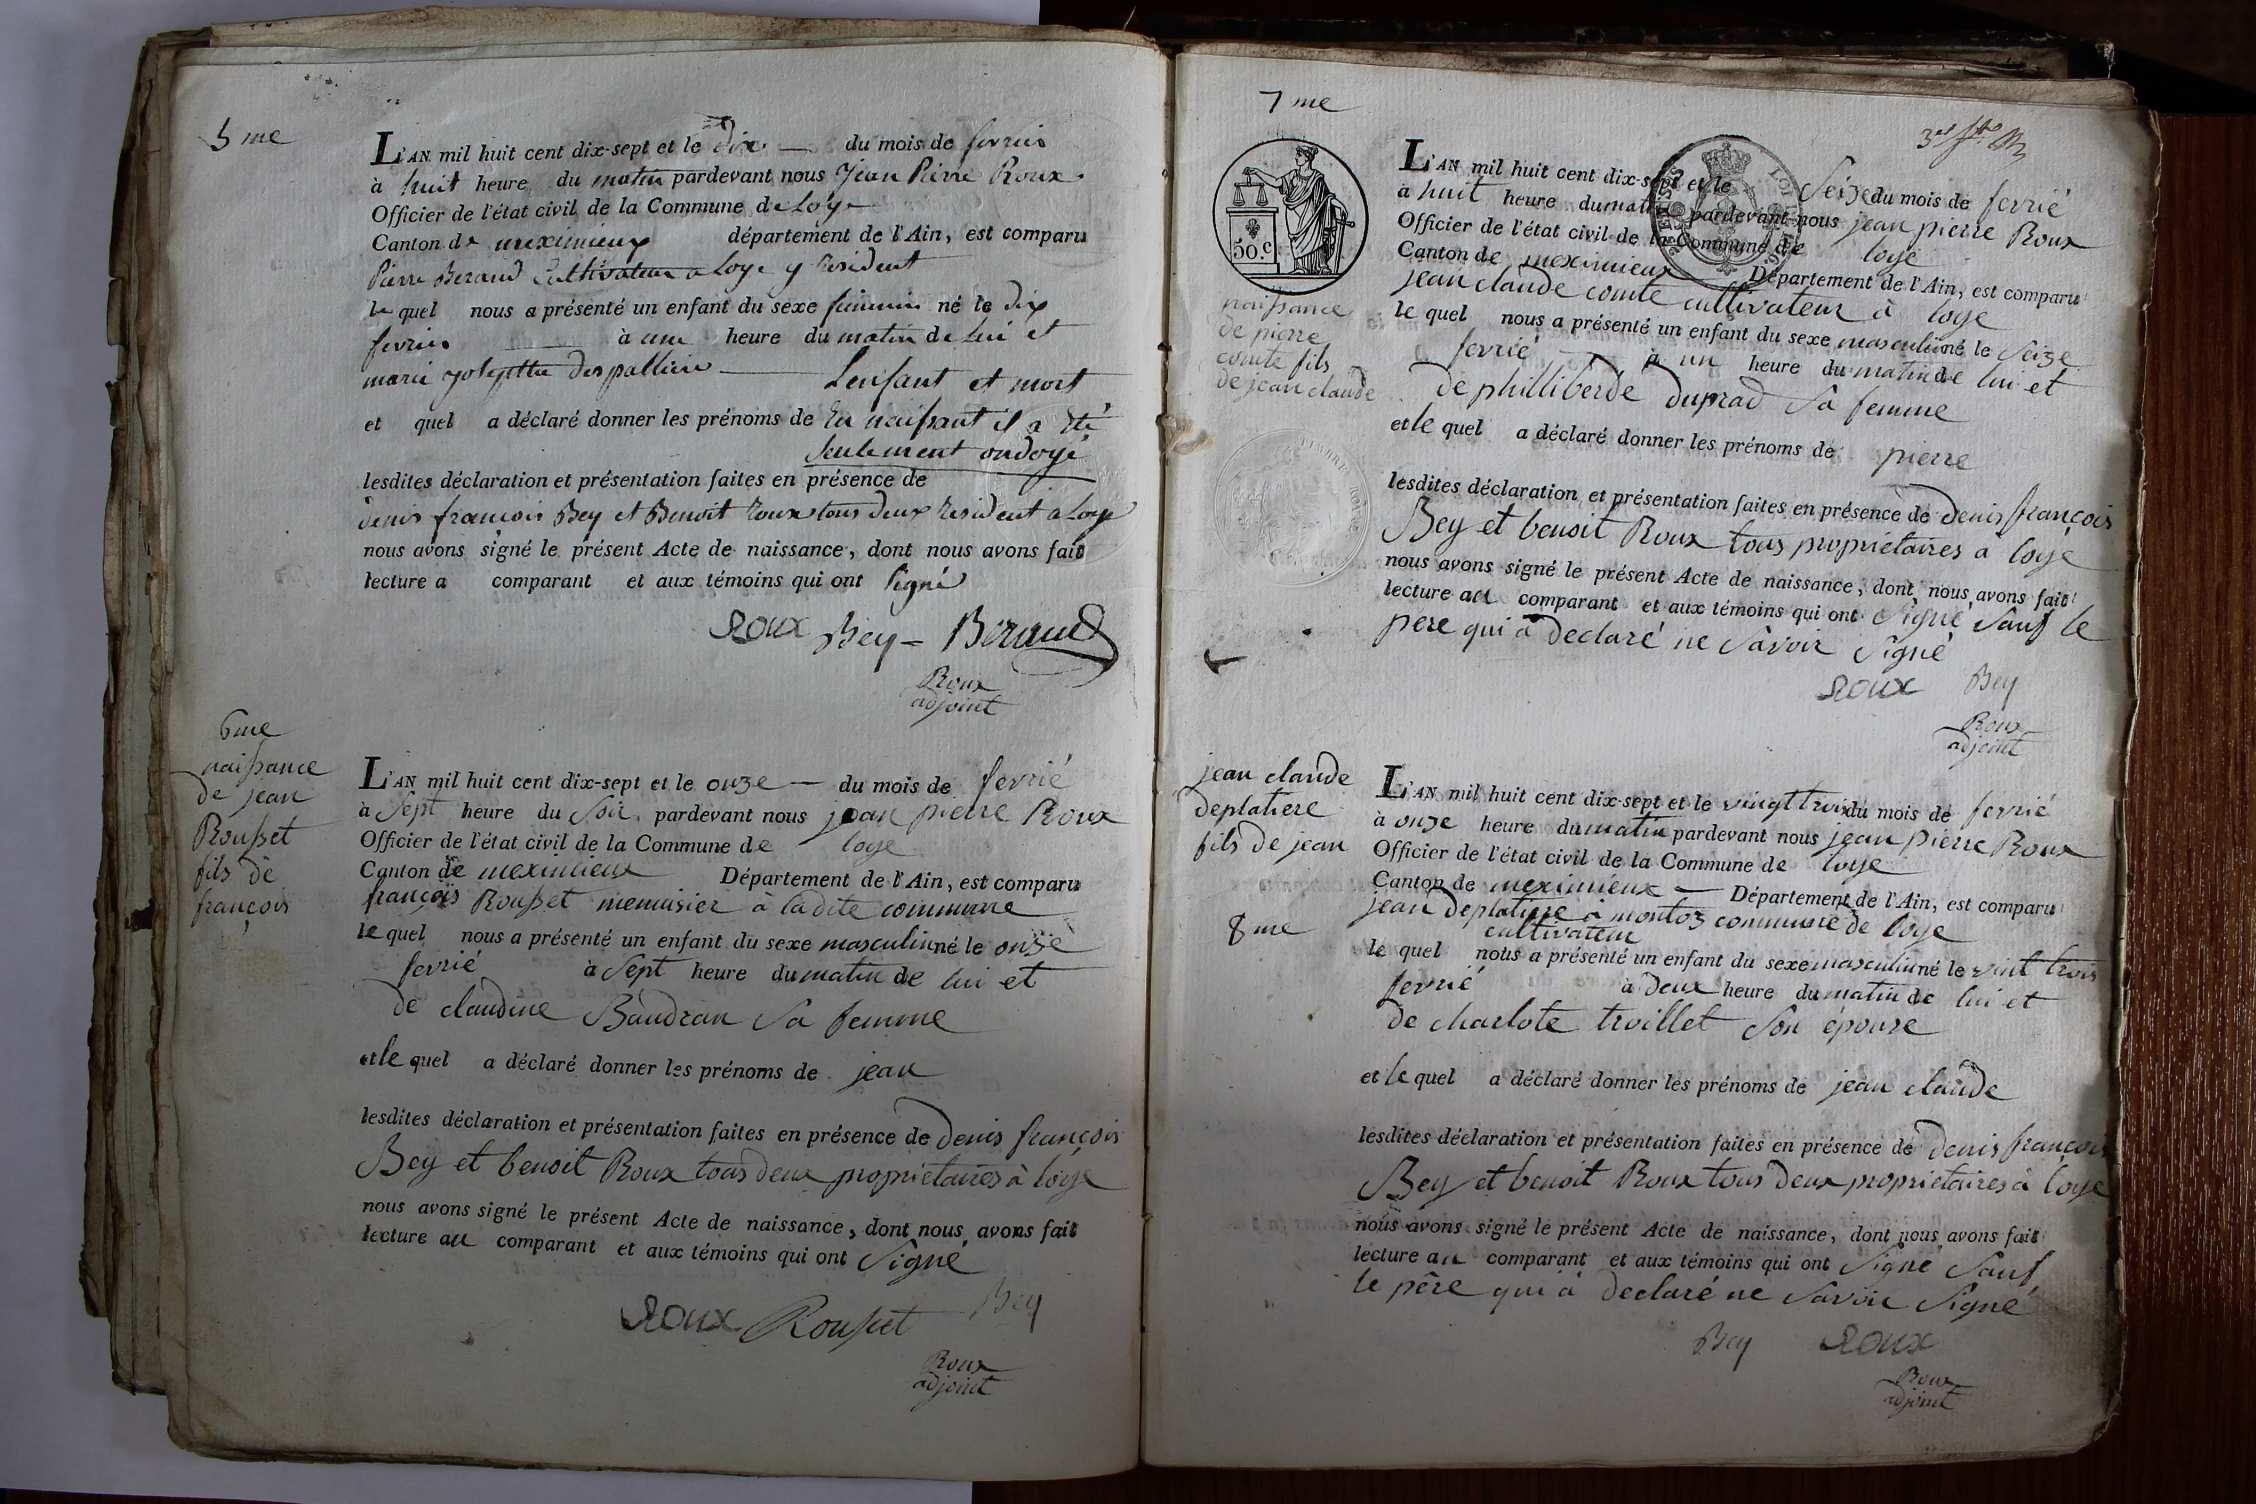 5 me
L'AN mil huit cent dix-sept et le dix — du mois de fevrier
à huit heure du matin pardevant nous Jean Pierre Roux
Officier de l'état civil de la Commune de Loye
Canton de meximieux département de l'Ain, est comparu
Pierre Beraud Cultivateur a Loye y resident
le quel nous a présenté un enfant du sexe feminin né le dix
fevrier à une heure du matin de Lui et
marie
L'enfant et mort
et quel a déclaré donner les prénoms de En naissant il a été
seulement ondoyé
lesdites déclaration et présentation faites en présence de
denis françois Bey et Benoit Roux tous deux resident a Loye
nous avons signé le présent Acte de naissance, dont nous avons fait
lecture a comparant et aux témoins qui ont signé
Roux Bey Beraud
Roux
adjoint
6me
naissance
de jean
Rousset
fils de
françois
L'AN mil huit cent dix-sept et le onze — du mois de fevrié
à sept heure du soir pardevant nous jean pierre Roux
Officier de l'état civil de la Commune de loye
Canton de meximieux Département de l'Ain, est comparu
françois Rousset menuisier à ladite commune
le quel nous a présenté un enfant du sexe masculin né le onze
fevrié à sept heure du matin de lui et
de claudine Baudran sa femme
et le quel a déclaré donner les prénoms de jean
lesdites déclaration et présentation faites en présence de denis françois
Bey et benoit Roux tous deux proprietaires à loye
nous avons signé le présent Acte de naissance, dont nous avons fait
lecture au comparant et aux témoins qui ont signé
Roux Rousset Bey
Roux
adjoint
7 me
50.c
naissance
de pierre
comte fils
de jean claude
L'AN mil huit cent dix-sept et le Seize du mois de fevrié
à huit heure du matin pardevant nous jean pierre Roux
Officier de l'état civil de la Commune de loye
Canton de meximieux Département de l'Ain, est comparu
jean claude comte cultivateur à loye
le quel nous a présenté un enfant du sexe masculin né le Seize
fevrié à un heure du matin de lui et
de philliberde duprad sa femme
et le quel a déclaré donner les prénoms de pierre
lesdites déclaration et présentation faites en présence de denis françois
Bey et benoit Roux tous proprietaires a loye
nous avons signé le présent Acte de naissance, dont nous avons fait
lecture au comparant et aux témoins qui ont signé sauf le
pere qui a declaré ne savoir signé
Roux Bey
Roux
adjoint
jean claude
deplatiere
fils de jean
8 me
L'AN mil huit cent dix-sept et le vingt trois du mois de fevrié
à onze heure du matin pardevant nous jean pierre Roux
Officier de l'état civil de la Commune de loye
Canton de meximieux — Département de l'Ain, est comparu
jean deplatiere à montoz commune de loye
cultivateur
le quel nous a présenté un enfant du sexe masculin né le vint trois
fevrié à deux heure du matin de lui et
de charlote troillet son épouse
et le quel a déclaré donner les prénoms de jean claude
lesdites déclaration et présentation faites en présence de denis françois
Bey et benoit Roux tous deux proprietaires à loye
nous avons signé le présent Acte de naissance, dont nous avons fait
lecture au comparant et aux témoins qui ont signé sauf
le père qui à declaré ne savoir signé
Bey Roux
Roux
adjoint